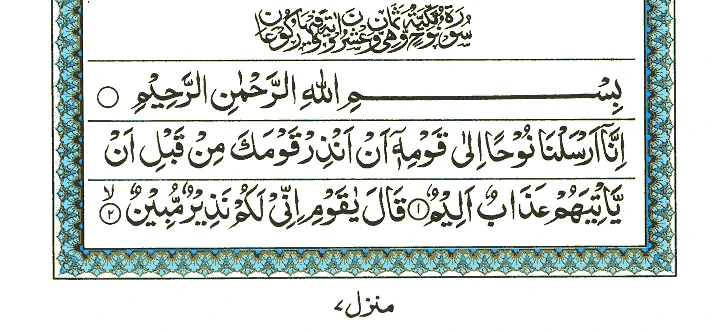 سُوْرَةُ نُوْحٍ مَّكِّيَّةٌ وَّهِيَ ثَمَانٍ وَّعِشْرُوْنَ اٰيَةً وَّفِيْهَا رُكُوْعَانِ
بِسْمِ اللهِ الرَّحْمٰنِ الرَّحِيْمِ ○
اِنَّاۤ اَرْسَلْنَا نُوْحًا اِلٰى قَوْمِهٖۤ اَنْ اَنْذِرْ قَوْمَكَ مِنْ قَبْلِ اَنْ
يَّاْتِيَهُمْ عَذَابٌ اَلِيْمٌ ۝۱ قَالَ يٰقَوْمِ اِنِّيْ لَكُمْ نَذِيْرٌ مُّبِيْنٌ ۝۲ۙ
منزل ۷